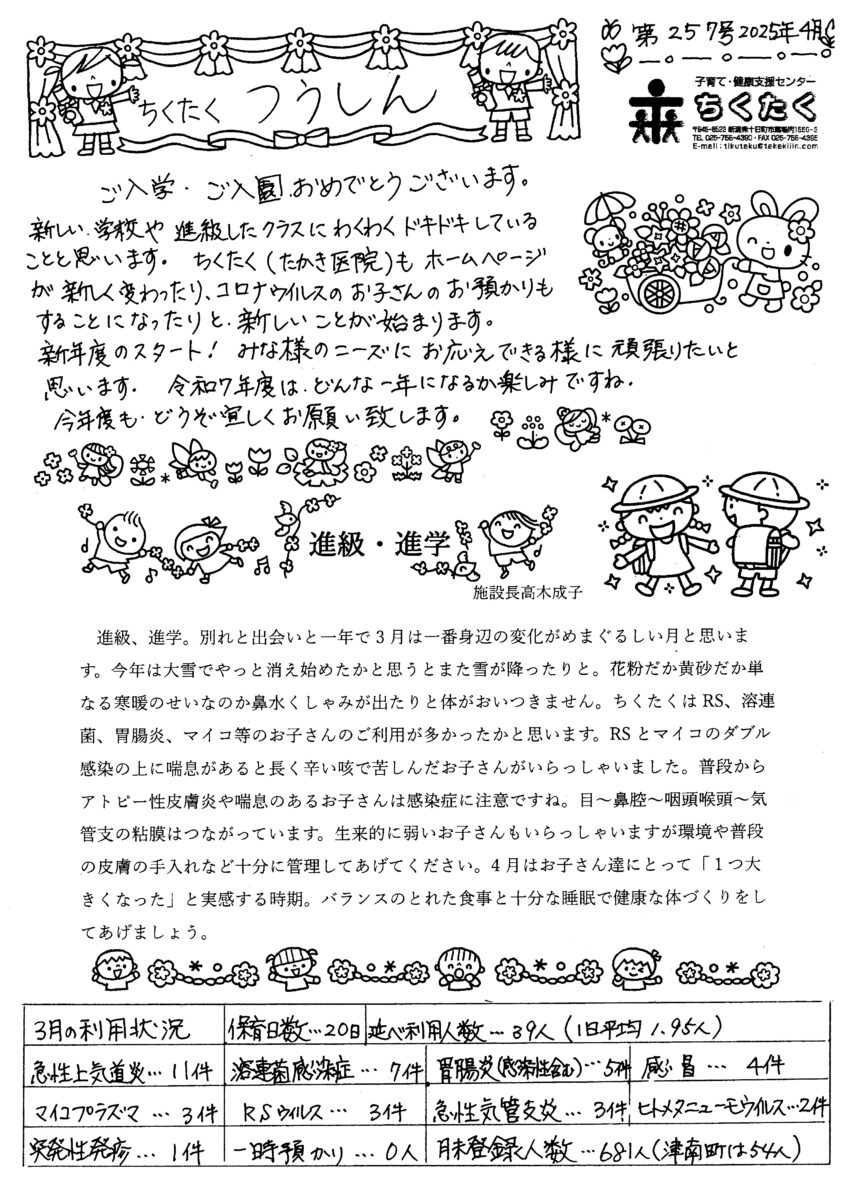 第257号2025年4月
ちくたく つうしん
子育て・健康支援センター
ちくたく
ご入学・ご入園おめでとうございます。
新しい学校や進級したクラスにわくわくドキドキしている
ことと思います。 ちくたく(たかき医院)も ホームページ
が新しく変わったり、コロナウイルスのお子さんのお預かりも
することになったりと、新しいことが始まります。
新年度のスタート! みな様のニーズにお応えできる様に頑張りたいと
思います。 令和7年度は、どんな一年になるか楽しみですね。
今年度も、どうぞ宜しくお願い致します。
進級・進学
施設長高木成子
進級、進学。別れと出会いと一年で3月は一番身辺の変化がめまぐるしい月と思いま
す。今年は大雪でやっと消え始めたかと思うとまた雪が降ったりと。花粉だか黄砂だか単
なる寒暖のせいなのか鼻水くしゃみが出たりと体がおいつきません。ちくたくはRS、溶連
菌、胃腸炎、マイコ等のお子さんのご利用が多かったかと思います。RSとマイコのダブル
感染の上に喘息があると長く辛い咳で苦しんだお子さんがいらっしゃいました。普段から
アトピー性皮膚炎や喘息のあるお子さんは感染症に注意ですね。目～鼻腔～咽頭喉頭～気
管支の粘膜はつながっています。生来的に弱いお子さんもいらっしゃいますが環境や普段
の皮膚の手入れなど十分に管理してあげてください。4月はお子さん達にとって「1つ大
きくなった」と実感する時期。バランスのとれた食事と十分な睡眠で健康な体づくりをし
てあげましょう。
3月の利用状況 保育日数…20日 延べ利用人数…39人(1日平均1.95人)
急性上気道炎…11件 溶連菌感染症…7件 胃腸炎(感染性含む)…5件 感冒…4件
マイコプラズマ…3件 RSウイルス…3件 急性気管支炎…3件 ヒトメタニューモウイルス…2件
突発性発疹…1件 一時預かり…0人 月末登録人数…681人(津南町は54人)